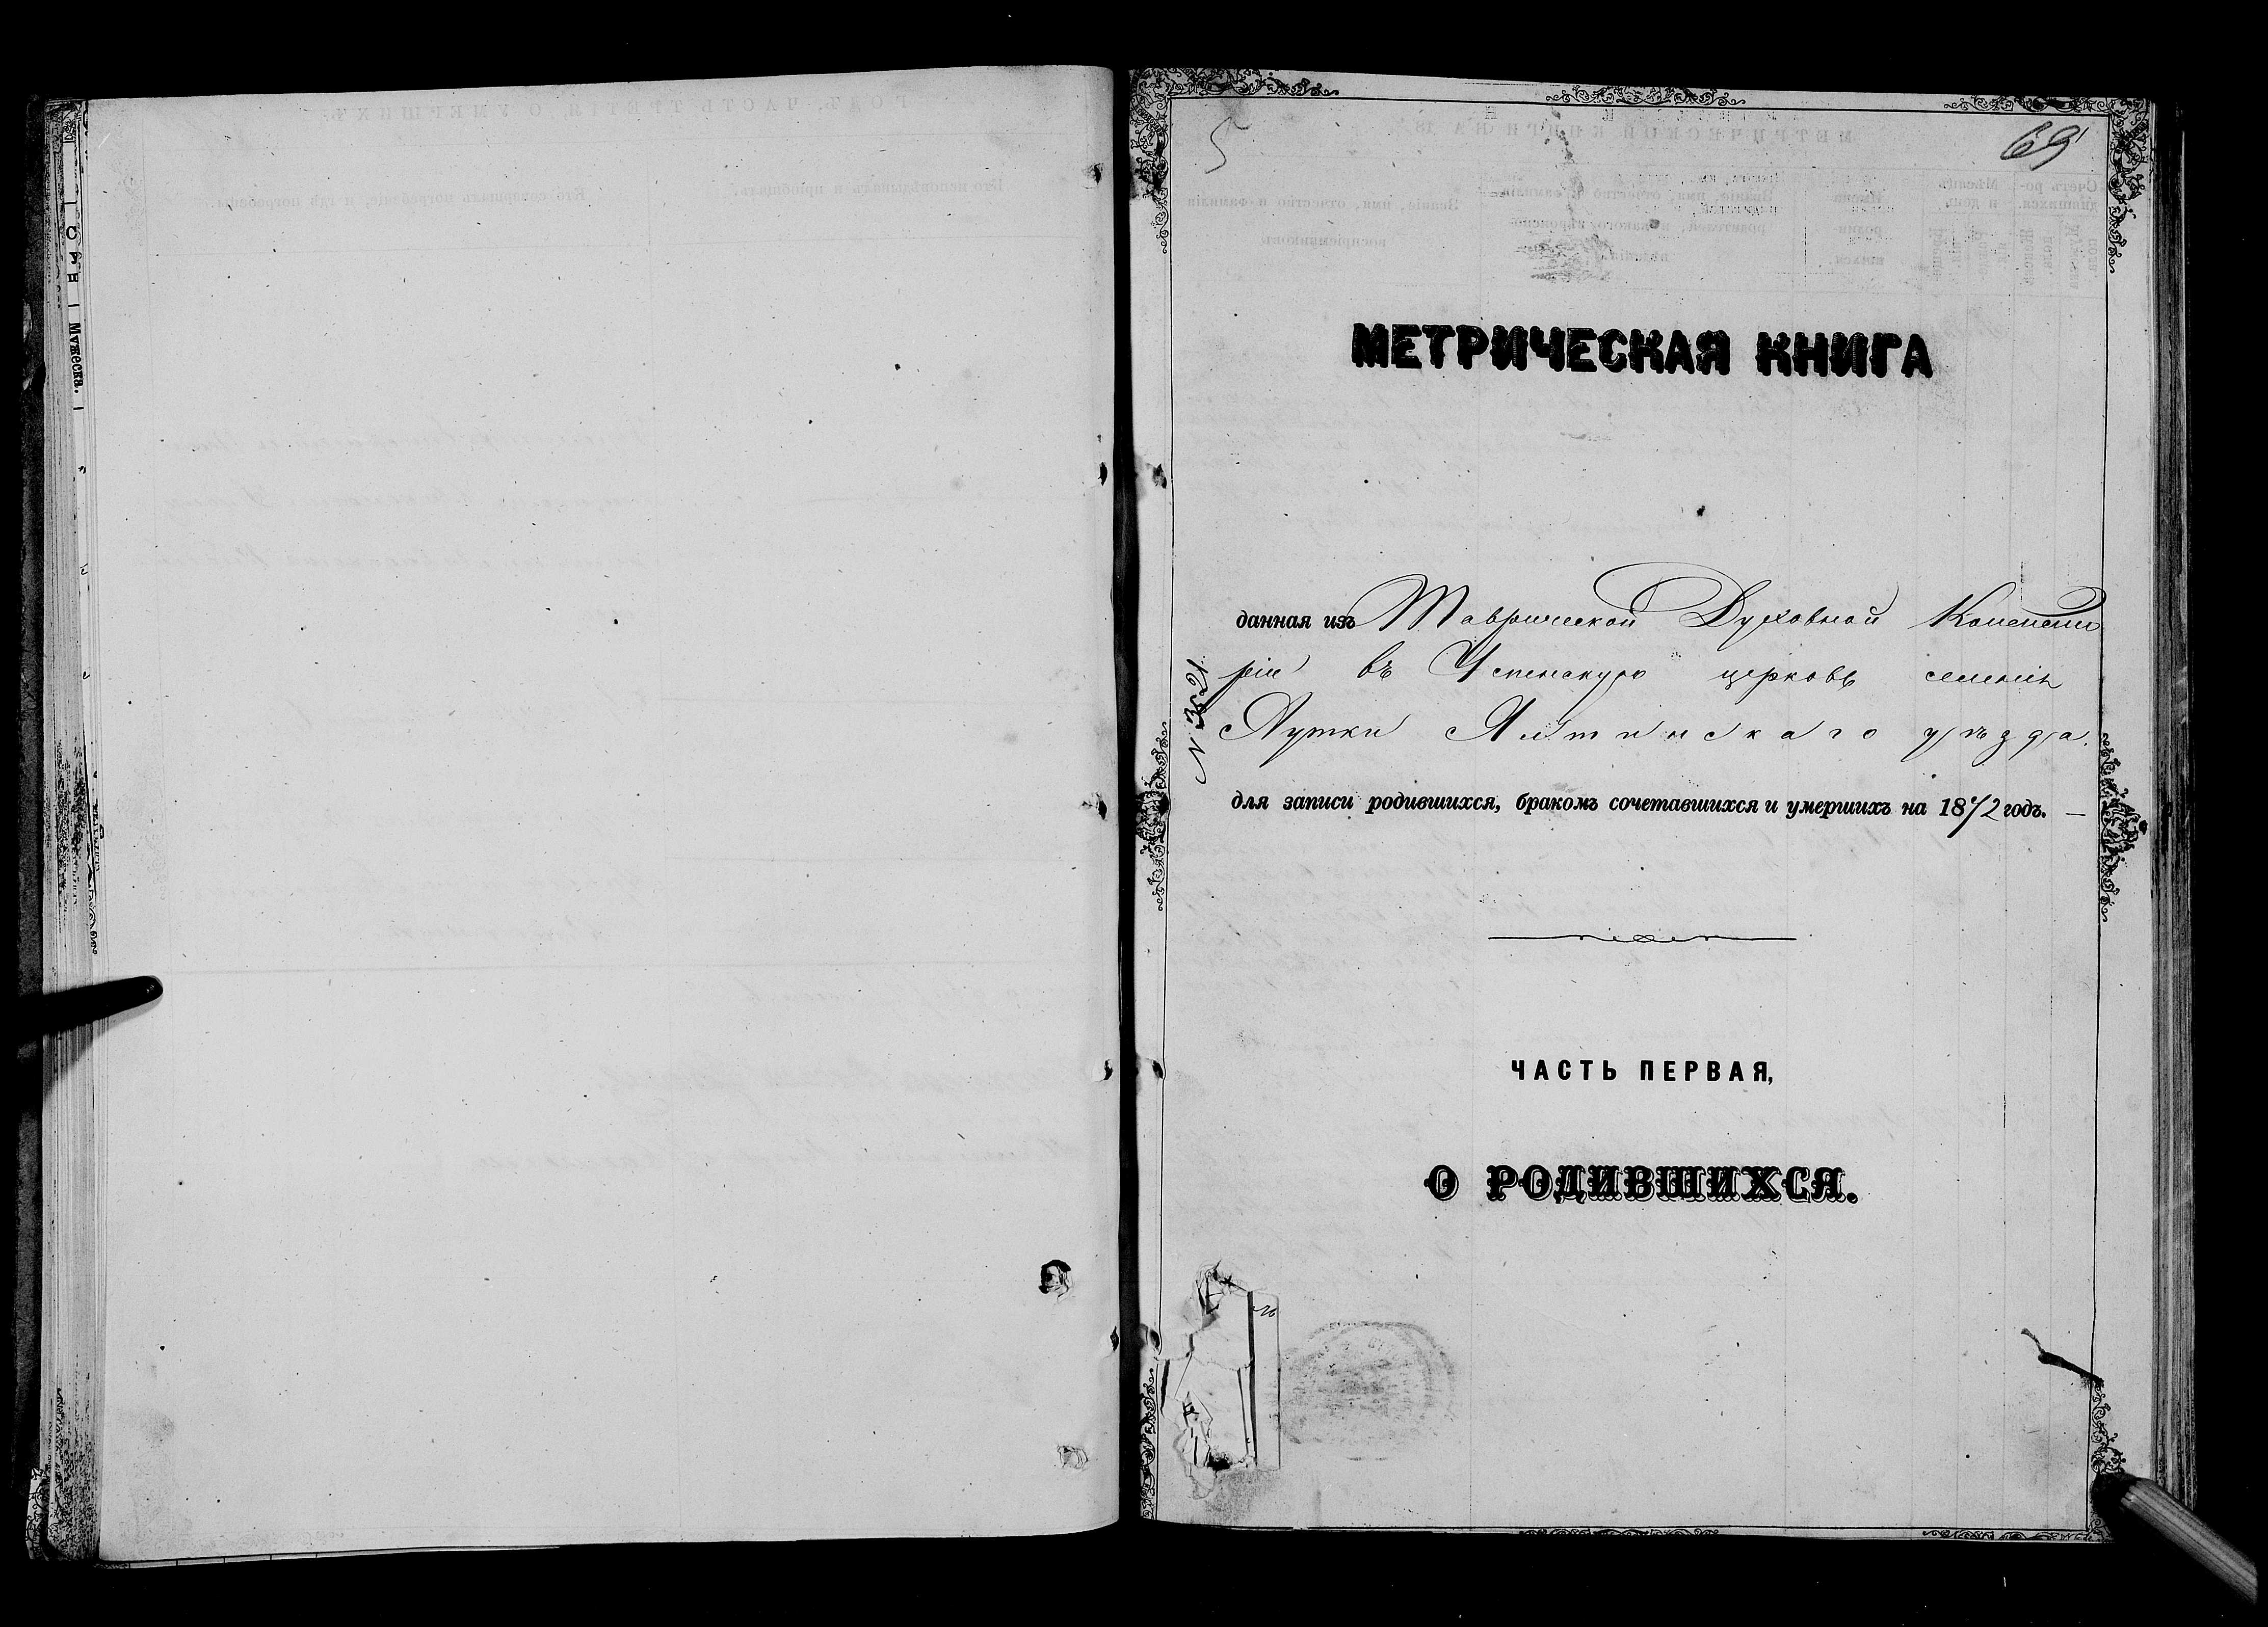 5
69
МЕТРИЧЕСКАЯ КНИГА
данная изъ Таврической Духовной Консисто
ріи въ Успенскую церковь селенія
Аутки Ялтинскаго уѣзда.
N 3521
для записи родившихся, бракомъ сочетавшихся и умершихъ на 1872 годъ.
ЧАСТЬ ПЕРВАЯ,
О РОДИВШИХСЯ.
Мужеска.